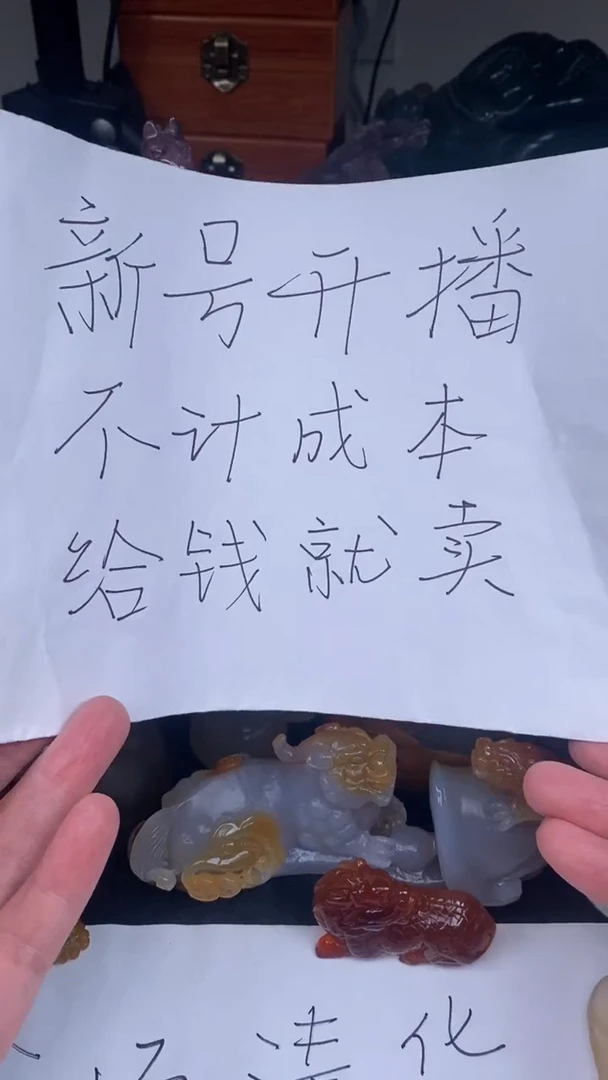 新号开播
不计成本
给钱就卖
造化